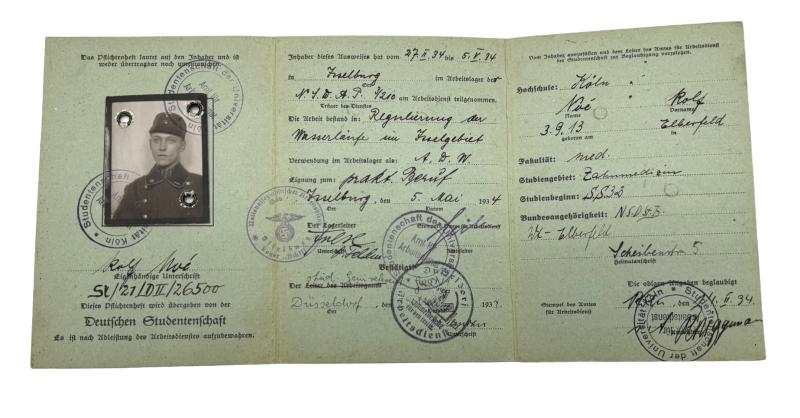 Das Pflichtenheft lautet auf den Inhaber und ist
weder übertragbar noch umtauschbar.
Studentenschaft der Universität Köln
Amt für
Studentenschaft der Universität Köln
Rolf Noé
Eigenhändige Unterschrift
St/21/D II/26500
Dieses Pflichtenheft wird übergeben von der
Deutschen Studentenschaft
Es ist nach Ableistung des Arbeitsdienstes aufzubewahren.
Inhaber dieses Ausweises hat vom 27.II.34 bis 5.V.34
in Isselburg im Arbeitslager der
Ort
N.S.D.A.P. 4/210 am Arbeitsdienst teilgenommen.
Träger des Dienstes
Die Arbeit bestand in: Regulierung der
Wasserläufe im Isselgebiet
Verwendung im Arbeitslager als: A.D.W.
Eignung zum: prakt. Beruf
Isselburg, den 5. Mai 1934
Ort Datum
Der Lagerleiter
Bestätigt
Der Leiter des Arbeitsgaues
Düsseldorf, den 1934
Ort
Vom Inhaber auszufüllen und dem Leiter des Amtes für Arbeitsdienst
der Studentenschaft zur Beglaubigung vorzulegen.
Hochschule: Köln
Noé Rolf
Name Vorname
3.9.13 Elberfeld
geboren am in
Fakultät: med.
Studiengebiet: Zahnmedizin
Studienbeginn: SS 32
Bundesangehörigkeit: N.S.D.St.B.
Elberfeld
Scheibenstr. 5
Heimatanschrift
Die obigen Angaben beglaubigt
Köln, den II. 34.
Stempel des Amtes
für Arbeitsdienst
Studentenschaft der Universität Köln